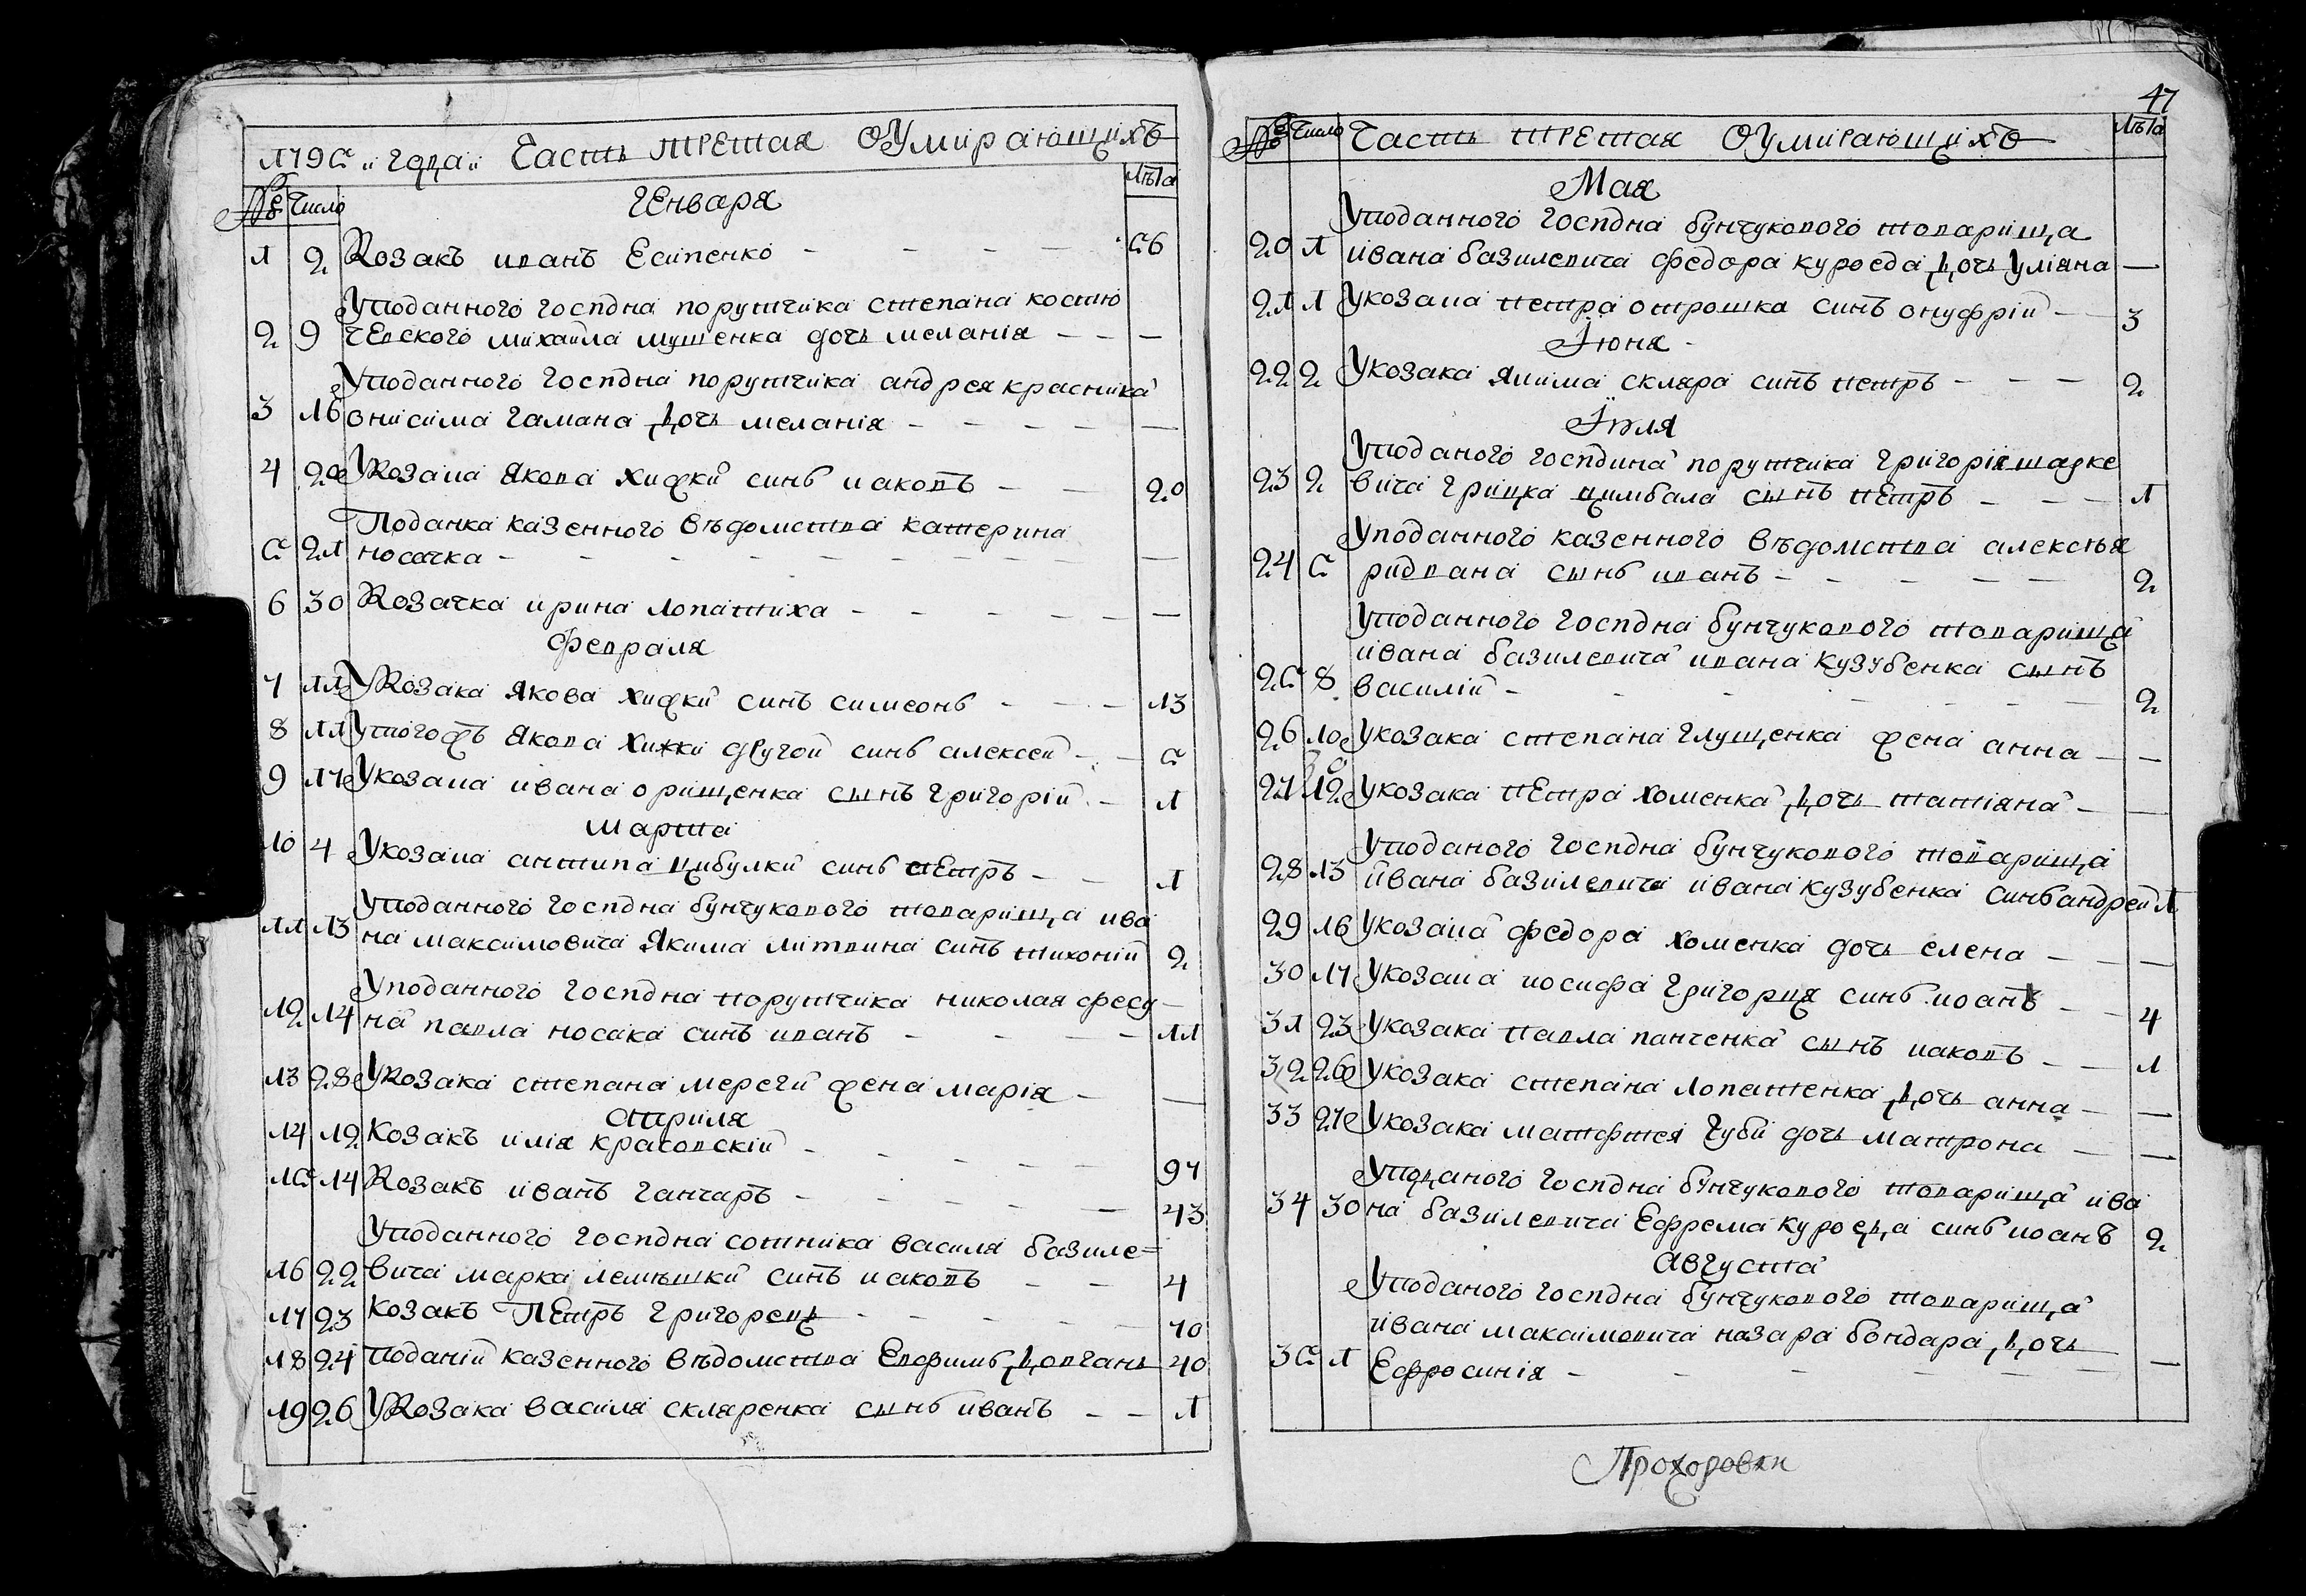 1795 й годай Часть третая Оумирающихъ
№ Число Генваря Лѣта
1 2 Козакъ иванъ Есипенко - - - - 56
Уподанного госпдна порутчика степана костю
2 9 чевского михайла мушенка дочь меланія - - —
Уподанного госпдна порутчика андрея красника
3 16 онисима гамана дочь меланія - - - - —
4 20 Укозака якова хижки синъ иаковъ - - 20
Поданка казенного вѣдомства катерина
5 21 носачка - - - - - - - —
6 30 Козачка ирина лопатиха - - - - - —
Февраля
7 11 Укозака якова хижки синъ симеонъ - - - 13
8 11 Утогожъ якова хижки другой синъ алексей - - 5
9 17 Укозака ивана орищенка сынъ григорій - 1
Марта
10 4 Укозака антипа цибулки синъ петръ - - 1
Уподанного госпдна бунчукового товарища ива
11 13 на максимовича якима литвина синъ тихоній 2
Уподанного госпдна порутчика николая фесу
12 14 на павла носака синъ иванъ - - - - 11
13 28 Укозака степана мереги жена марія - —
Априля
14 12 Козакъ илія красовскій - - - - - 97
15 14 Козакъ иванъ ганчаръ - - - - — 43
Уподанного госпдна сотника василя базиле=
16 22 вича марка лемѣшки синъ иаковъ - - 4
17 23 козакъ Петръ григорецъ - - - - - 70
18 24 поданій казенного вѣдомства Евфимъ довгань 40
19 26 Укозака василя скляренка сынъ иванъ - - 1
47
№ Число Часть третая Оумирающихъ Лѣта
Мая
Уподанного госпдна бунчукового товарища
20 1 ивана базилевича федора куроеда дочь уліяна —
21 1 Укозака петра отрошка синъ онуфрій - - 3
Іюня
22 2 Укозака якима скляра синъ петръ - - - 2
Іюля
Уподаного госпдина порутчика григорія шарке
23 2 вича грицка цимбала сынъ петръ - - - 1
Уподанного казенного вѣдомства алексѣя
24 5 ридвана сынъ иванъ - - - - - 2
Уподанного госпдна бунчукового товарища
ивана базилевича ивана кузубенка сынъ
25 8 василій - - - - - - 2
26 10 Укозака степана глущенка жена анна - —
27 12 Укозака петра хоменка дочь татіяна - —
Уподаного госпдна бунчукового товарища
28 13 ивана базилевича ивана кузубенка синъ андрей 1
29 16 Укозака федора хоменка дочь елена - - —
30 17 Укозака иосифа григорця синъ иоанъ - - 4
31 23 Укозака павла панченка сынъ иаковъ - - 1
32 26 Укозака степана лопатенка дочь анна - —
33 27 Укозака матфтея чуби дочь матрона - —
Уподаного госпдна бунчукового товарища ива
34 30 на базилевича Ефрема куроеда синъ иоанъ 2
Августа
Уподаного госпдна бунчукового товарища
ивана максимовича назара бондара дочь
35 1 Ефросинія - - - - - - —
Прохоровки